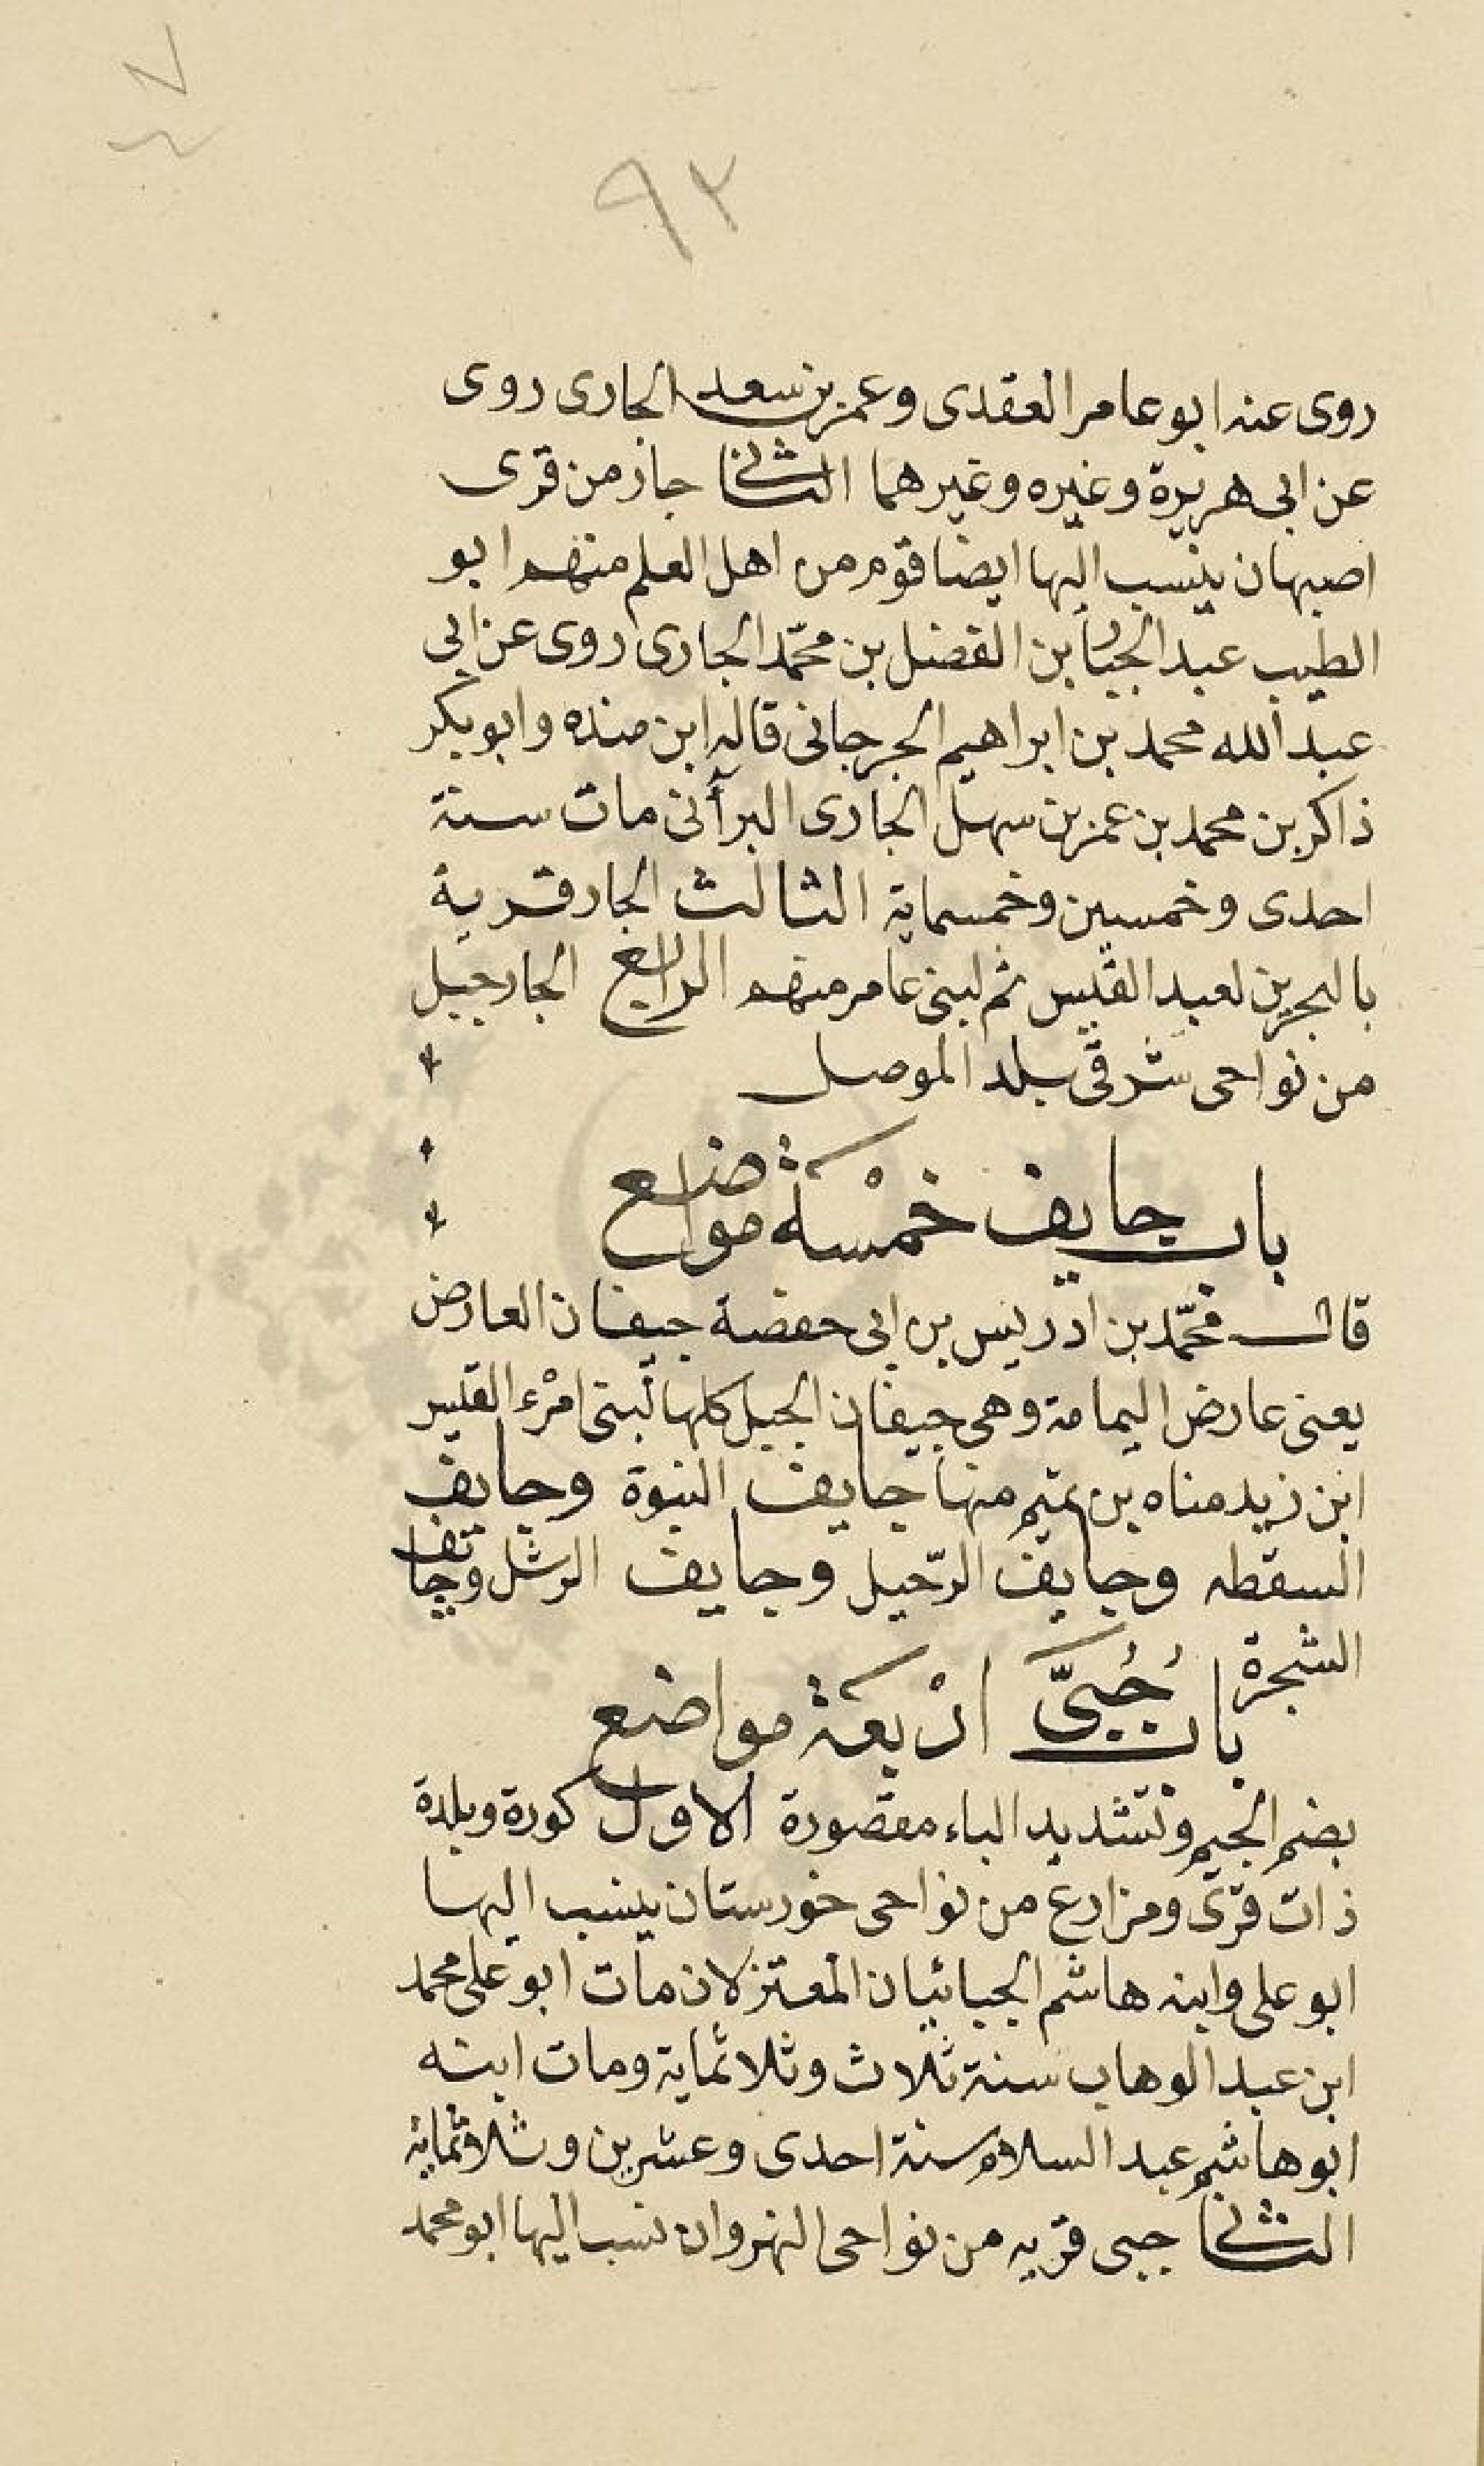 ٩٢
روى عنه ابو عامر العقدى وعمر بن سعد الجارى روى
عن ابى هريرة وغيره وغيرهما الثانى جاز من قرى
اصبهان ينسب اليها ايضا قوم من اهل العلم منهم ابو
الطيب عبد الجبار بن الفضل بن محمّد الجارى روى عن ابى
عبد الله محمد بن ابراهيم الجرجانى قاله ابن منده وابو بكر
ذاكر بن محمد بن عمر بن سهل الجارى البرآنى مات سنة
احدى وخمسين وخمسماية الثالث الجار قرية
بالبحرين لعبد القيس ثم لبنى عامر منهم الرابع الجار جبل
من نواحى شرقى بلد الموصل
باب جايف خمْسَة مواضع
قال محمّد بن ادريس بن ابى حفصة جيفان العارض
يعنى عارض اليمامة وهى جيفان الجبل كلها لبنى امْرء القيس
ابن زيد مناه بن تميم منها جايف النبوة وجايف
السقطه وجايف الرّحيل وجايف الرشل وجايف
الشجرة
باب جُبَّى ارْبعة مواضع
بضم الجيم وتشديد الباء مقصورة الاول كورة وبلدة
ذات قرى ومزارع من نواحى خورستان ينسب اليها
ابو على وابنه هاشم الجبائيان المعتزلان مات ابو على محمد
ابن عبد الوهاب سنة ثلاث وثلاثماية ومات ابنه
ابو هاشم عبد السلام سنة احدى وعشرين وثلاثماية
الثانى جبى قريه من نواحى النهروان نسب اليها ابو محمد